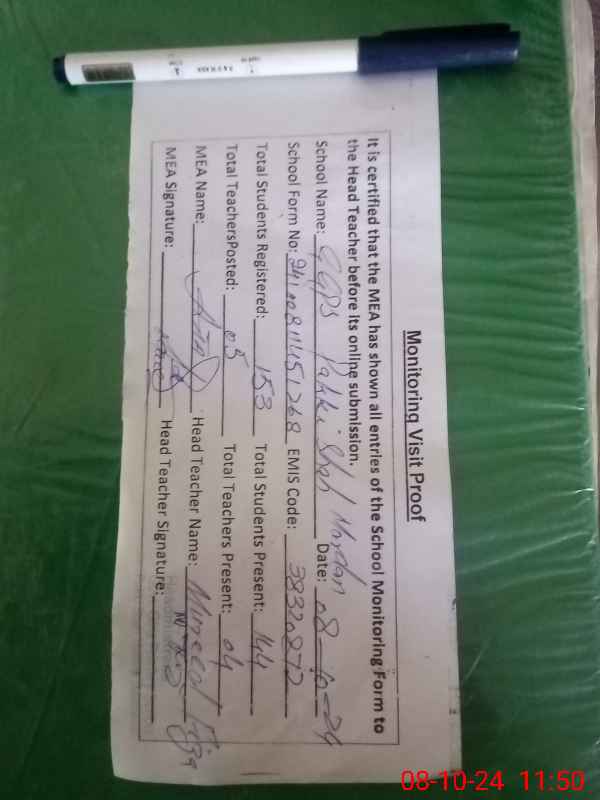 Monitoring Visit Proof
It is certified that the MEA has shown all entries of the School Monitoring Form to
the Head Teacher before its online submission.
School Name: GGPS Pakki Shah Mardan Date: 08-10-24
School Form No: EMIS Code:
Total Students Registered: 153 Total Students Present: 144
Total TeachersPosted: 05 Total Teachers Present: 04
MEA Name: Head Teacher Name:
MEA Signature: Head Teacher Signature:
08-10-24 11:50